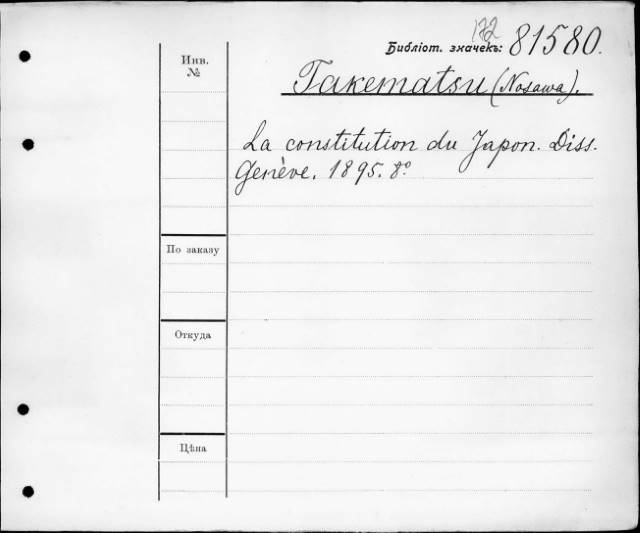 172
Библіот. значекъ: 81580.
Takematsu (Nosawa).
La constitution du Japon. Diss.
Genève. 1895. 8º
Инв.
№
По заказу
Откуда
Цѣна